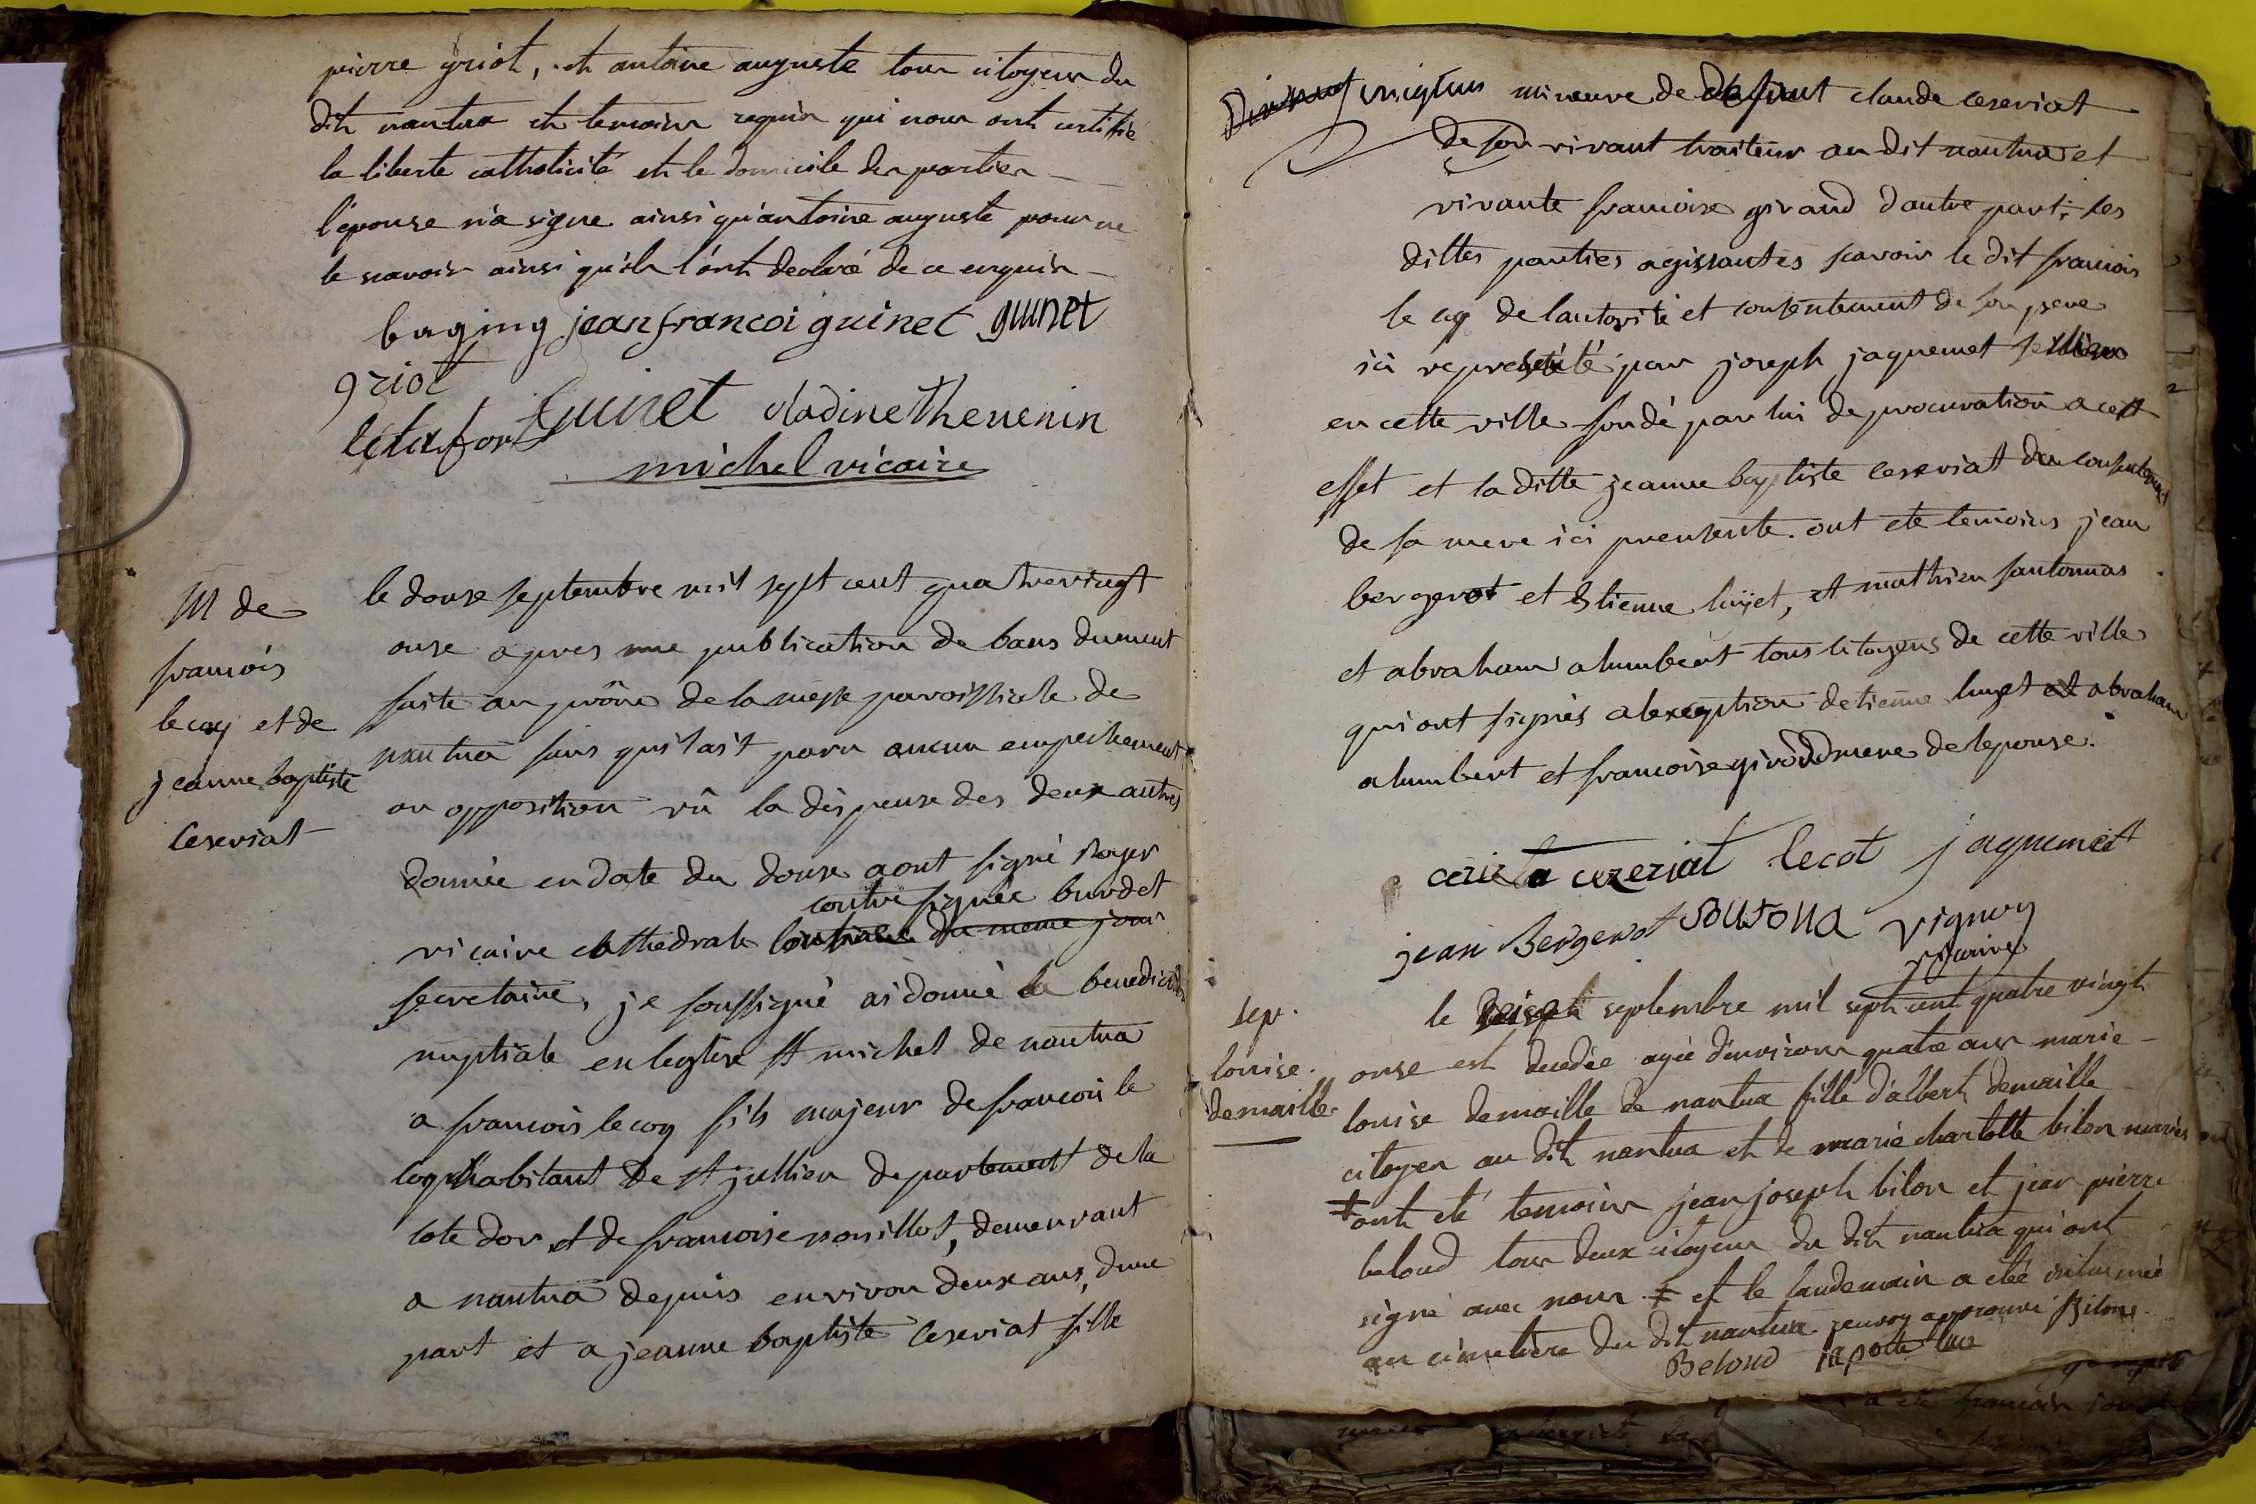 pierre griot, et antoine auguste tous citoyens du
dit nantua et temoins requis qui nous ont certifié
la liberte catholicité et le domicile des parties
l'epouse n'a signe ainsi qu'antoine auguste pour ne
le scavoir ainsi qu'ils l'ont declaré de ce enquis
jean francoi guinet guinet
griot
guinet cladine thevenin
michel vicaire
M de
francois
lecoq et de
jeanne baptiste
Ceseriat
le douse septembre mil sept cent quatrevingt
onse apres une publication de bans dument
faite au prône de la messe paroissiale de
nantua sans qu'il ait paru aucun empechement
ou opposition vû la dispense des deux autres
donnée en date du douse aout signé Royer
contre signée burdet
vicaire cathedrale du meme jour
secretaire, je soussigné ai donné la benediction
nuptiale en leglise st michel de nantua
a francois lecoq fils majeur de francois le
coq habitant de st jullien departement de la
cote dor et de francoise nouillot, demeurant
a nantua depuis environ deux ans, dune
part et a jeanne baptiste Ceseriat fille
mineure de defunt claude ceseriat
de son vivant traiteur au dit nantua et
vivante francoise giraud d'autre part; les
dittes parties agissantes scavoir le dit francois
le coq de lautorité et consentement de son pere
ici representé par joseph jaquemet sellier
en cette ville fondé par lui de procuration a cet
effet et la ditte jeanne baptiste ceseriat du consentement
de sa mere ici presente. ont ete temoins jean
bergerot et Etienne huget, et mathieu santonnas
et abraham alumbert tous citoyens de cette ville
qui ont signés alexception detienne huget et abraham
alumbert et francoise giroud mere de lepouse.
cezeriat lecot jaquemet
jean Bergerot Soutona vignoy
vicaire
sep.
louise
demaille
le septembre mil sept cent quatre vingt
onse est decedée agée d'environ quatre ans marie
louise demaille de nantua fille d'albert demaille
citoyen au dit nantua et de marie charlotte bilon mariés
‡ ont eté temoins jean joseph bilon et jean pierre
beloud tous deux citoyens du dit nantua qui ont
signé avec nous ‡ et le landemain a eté inhumée
au cimetière du dit nantua renvoy approuvé Bilon
Beloud laporte